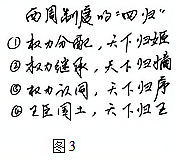 西周制度的“四归”
①权力分配，天下归姬
②权力继承，天下归嫡
③权力认同，天下归序
④王臣国土，天下归王
图3